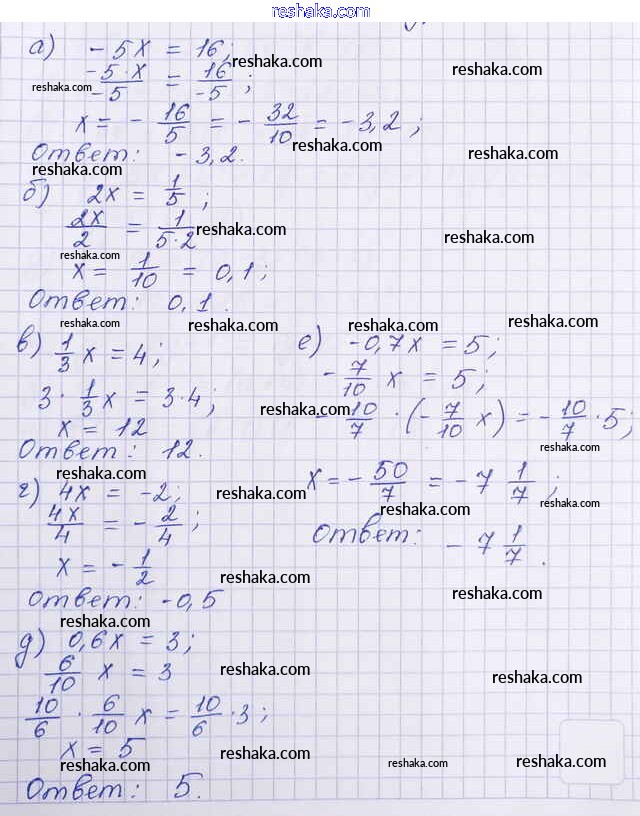 reshaka.com
а) -5x = 16;
reshaka.com
reshaka.com
-5·x/-5 = 16/-5;
reshaka.com
reshaka.com
x = - 16/5 = - 32/10 = - 3,2;
Ответ: - 3,2.
reshaka.com
reshaka.com
б) 2x = 1/5;
2x/2 = 1/5·2
reshaka.com
reshaka.com
reshaka.com
x = 1/10 = 0,1;
Ответ: 0,1.
reshaka.com
reshaka.com
reshaka.com
в) 1/3 x = 4;
3 · 1/3 x = 3·4;
x = 12
Ответ: 12.
reshaka.com
reshaka.com
г) 4x = -2;
4x/4 = - 2/4;
x = - 1/2
reshaka.com
Ответ: -0,5
reshaka.com
д) 0,6x = 3;
6/10 x = 3
reshaka.com
10/6 · 6/10 x = 10/6 · 3;
reshaka.com
x = 5
reshaka.com
reshaka.com
Ответ: 5.
reshaka.com
е) -0,7x = 5;
- 7/10 x = 5;
reshaka.com
- 10/7 · (- 7/10 x) = - 10/7 · 5;
reshaka.com
x = - 50/7 = - 7 1/7;
reshaka.com
reshaka.com
Ответ: - 7 1/7.
reshaka.com
reshaka.com
reshaka.com
reshaka.com
reshaka.com